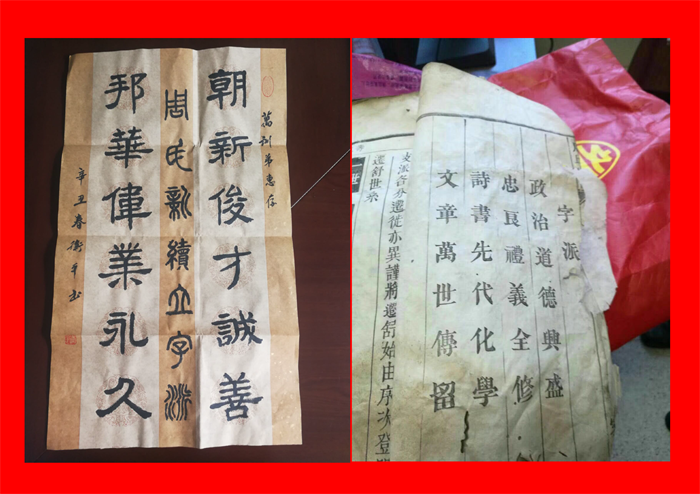 萬利弟惠存
朝新俊才誠善
周氏新續立字派
邦華偉業永久
辛丑春衛平书
字派
政治道德興盛
忠良禮義全修
詩書先代化學
文章萬世傳留
支派各分遷徙亦異謹將遷舒始由序次登
遷舒世系